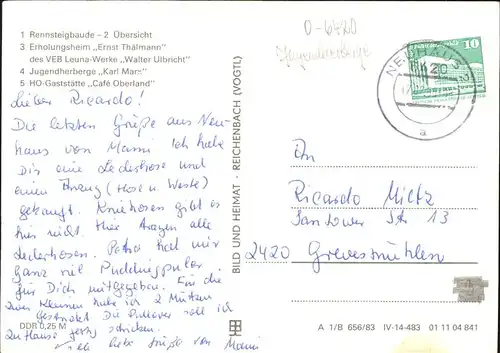 1 Rennsteigbaude – 2 Übersicht
3 Erholungsheim „Ernst Thälmann"
des VEB Leuna-Werke „Walter Ulbricht"
4 Jugendherberge „Karl Marx"
5 HO-Gaststätte „Café Oberland"
0-6420
Jugendherberge
NEUHAUS
6420
a
10
Lieber Ricardo!
Die letzten Grüße aus Neu-
haus von Mami. Ich habe
Dir eine Lederhose und
einen Anzug (Hose u Weste)
gekauft. Kniehosen gibt es
hier nicht. Hier tragen alle
Lederhosen. Petra hat mir
ganz viel Puddingpulver
für Dich mitgegeben. Für die
zwei Kleinen habe ich 2 Mützen
gestrickt. Die Pullover soll ich
zu Hause fertig stricken.
viele liebe Grüße von Mami
DDR 0,25 M
BILD UND HEIMAT · REICHENBACH (VOGTL)
An
Ricardo Miltz
Santower Str 13
2420 Grevesmühlen
A 1/B 656/83 IV-14-483 01 11 04 841